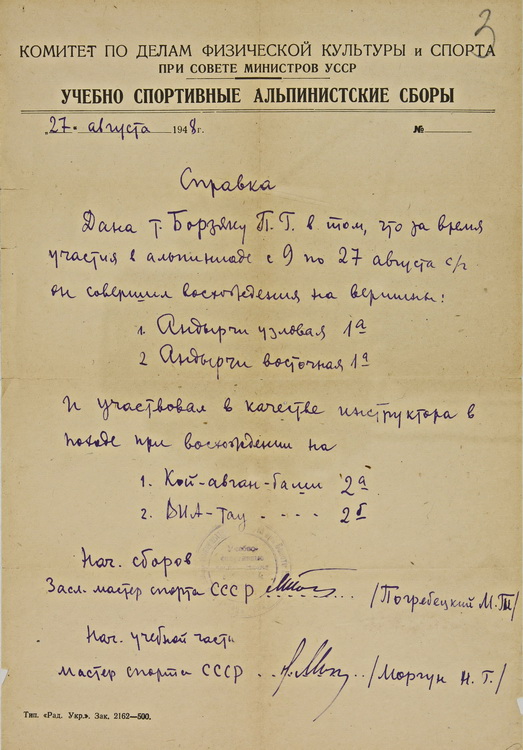 3
КОМИТЕТ ПО ДЕЛАМ ФИЗИЧЕСКОЙ КУЛЬТУРЫ и СПОРТА
ПРИ СОВЕТЕ МИНИСТРОВ УССР
УЧЕБНО СПОРТИВНЫЕ АЛЬПИНИСТСКИЕ СБОРЫ
„27" августа 1948 г. №
Справка
Дана т. Борзяку П. Г. в том, что за время
участия в альпиниаде с 9 по 27 августа с/г
он совершил восхождения на вершины:
1. Андырчи узловая 1а
2 Андырчи восточная 1а
И участвовал в качестве инструктора в
походе при восхождении на
1. Кой-авган-баши 2а
2. ВИА-тау - - - - 2б
Нач. сборов
Засл. мастер спорта СССР /Погребецкий М. Т./
Нач. учебной части
мастер спорта СССР /Моргун Н. Г./
Тип. «Рад. Укр.». Зак. 2162—500.